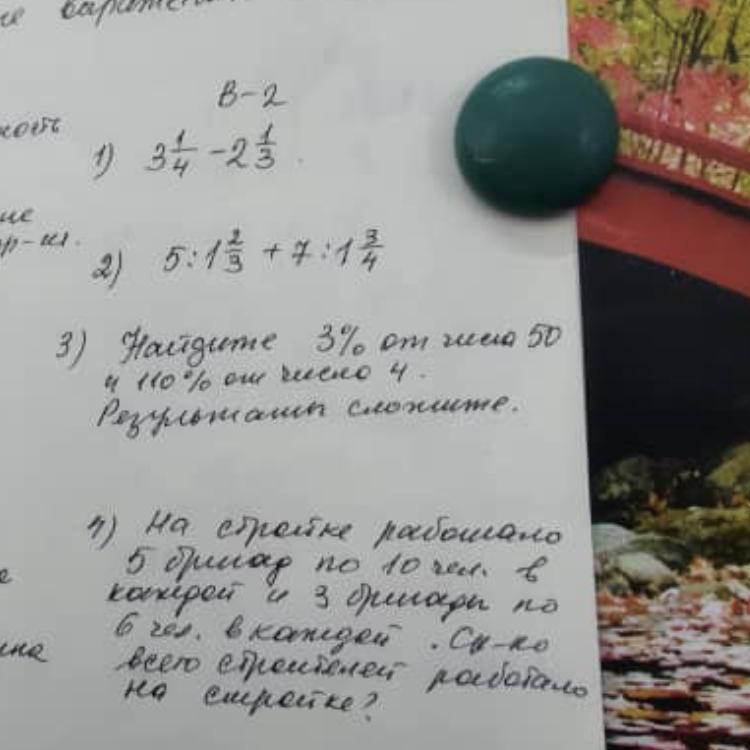 В-2
ность
1) 3 1/4 - 2 1/3.
2) 5 : 1 2/3 + 7 : 1 3/4
3) Найдите 3% от числа 50
и 110% от число 4.
Результаты сложите.
4) На стройке работало
5 бригад по 10 чел. в
каждой и 3 бригады по
6 чел. в каждой. Ск-ко
всего строителей работало
на стройке?